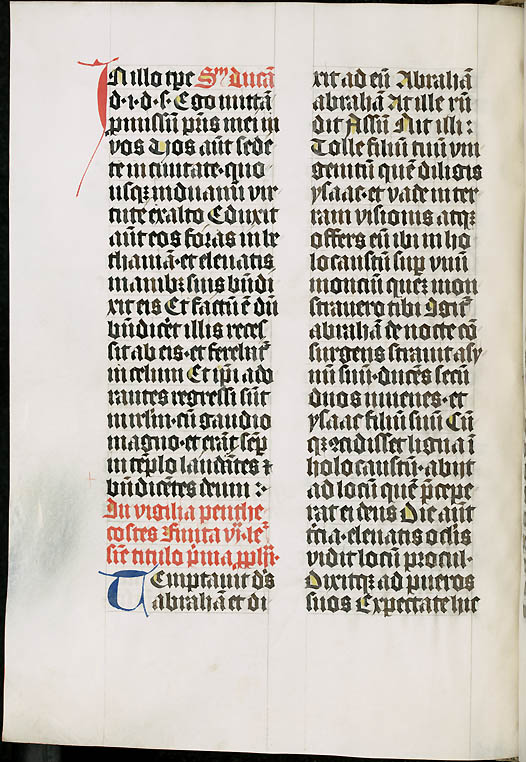 In illo tpe Sm̄ Lucā
d·i·d·s· Ego mittā
ꝓmissū pr̄is mei in
vos Uos aūt sede
te in ciuitate· quo
usqꝫ induamī vir
tute ex alto Eduxit
aūt eos foras in be
thaniā· et eleuatis
manibꝫ suis bn̄di
xit eis Et factū ē dū
bn̄dicēt illis reces
sit ab eis· et ferebat᷑
in celum Et ip̄i ado
rantes regressi sūt
in irlm̄· cū gaudio
magno· et erāt semꝑ
in tēplo laudātes ⁊
bn̄dicētes deum :·
In vigilia penthe
costes Finita vj· le᷑
sine titulo pͥma ꝓph̄·
TEmptauit ds̄
abrahā et di
xit ad eū Abrahā
abrahā At ille rn̄
dit Assū Ait illi :
Tolle filiū tuū vni
genitū quē diligis
ysaac· et vade in ter
ram visionis atqꝫ
offers eū ibi in ho
locaustū suꝑ vnū
montiū quē mon
strauero tibi Igit᷑
abrahā de nocte cō
surgens strauit asi
nū suū· ducēs secū
duos iuuenes· et
ysaac filiū suū Cū
qꝫ cidisset ligna ī
holocaustū· abijt
ad locū quē p̄cepe
rat ei deus Die aūt
tr̄cia· eleuatis oclis
vidit locū procul·
Dixitqꝫ ad pueros
suos Expectate hic